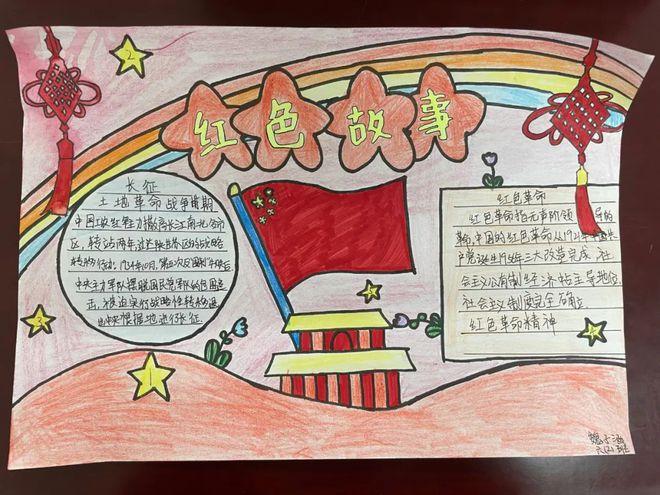 红色故事
长征
土地革命战争时期
中国工农红军主力撤离长江南北各苏
区，转战两年，过
转移行动。1934年10月，第五次反围剿失败后
中央主力军队摆脱国民党军队的包围追
击，被迫实行战略性转移，退
出中央根据地进行长征.
红色革命
红色革命指无产阶领导的
革命，中国的红色革命从1921年中国共
产党诞生1956年三大改造完成，社
会主义公有制经济粘主导地位，
社会主义制度完全确立
红色革命精神
2
3
1
5
4
魏子涵
六(2)班